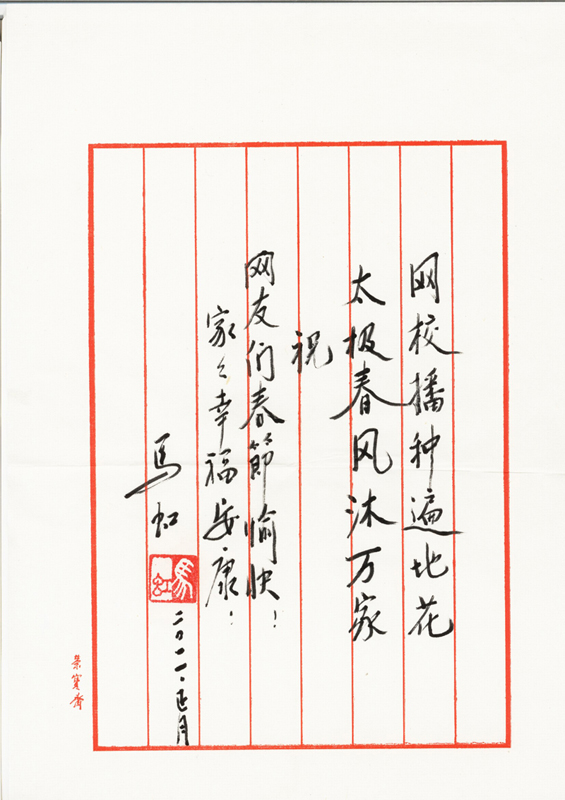 网校播种遍地花
太极春风沐万家
祝
网友们春節愉快！
家々幸福安康！
馬虹
馬虹
二〇一一.正月
荣寶斋